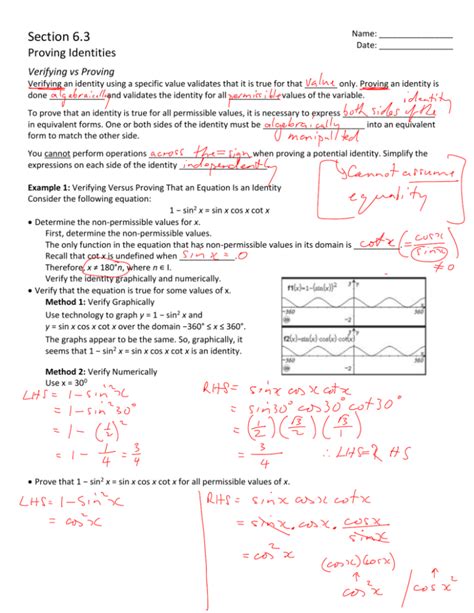 Section 6.3
Name: _______________
Date: _______________
Proving Identities
Verifying vs Proving
Verifying an identity using a specific value validates that it is true for that value only. Proving an identity is
done algebraically and validates the identity for all permissible values of the variable.
identity
To prove that an identity is true for all permissible values, it is necessary to express both sides of the
in equivalent forms. One or both sides of the identity must be algebraically into an equivalent
manipulated
form to match the other side.
You cannot perform operations across the = sign when proving a potential identity. Simplify the
expressions on each side of the identity independently.
Cannot assume
equality
Example 1: Verifying Versus Proving That an Equation Is an Identity
Consider the following equation:
1 − sin² x = sin x cos x cot x
• Determine the non-permissible values for x.
First, determine the non-permissible values.
The only function in the equation that has non-permissible values in its domain is cot x (= cos x / sin x)
≠ 0
Recall that cot x is undefined when sin x = 0.
Therefore, x ≠ 180°n, where n ∈ I.
Verify the identity graphically and numerically.
• Verify that the equation is true for some values of x.
Method 1: Verify Graphically
Use technology to graph y = 1 − sin² x and
y = sin x cos x cot x over the domain −360° ≤ x ≤ 360°.
The graphs appear to be the same. So, graphically, it
seems that 1 − sin² x = sin x cos x cot x is an identity.
f1(x)=1−(sin(x))²
-360
360
-2
f2(x)=sin(x)·cos(x)·cot(x)
-360
360
-2
Method 2: Verify Numerically
Use x = 30⁰
LHS = 1 − sin² x
= 1 − sin² 30°
= 1 − (1/2)²
= 1 − 1/4 = 3/4
RHS = sin x cos x cot x
= sin 30° cos 30° cot 30°
= (1/2)(√3/2)(√3/1)
= 3/4 ∴ LHS = RHS
• Prove that 1 − sin² x = sin x cos x cot x for all permissible values of x.
LHS = 1 − sin² x
= cos² x
RHS = sin x cos x cot x
= sin x · cos x · cos x / sin x
= cos² x
(cos x)(cos x)
cos² x